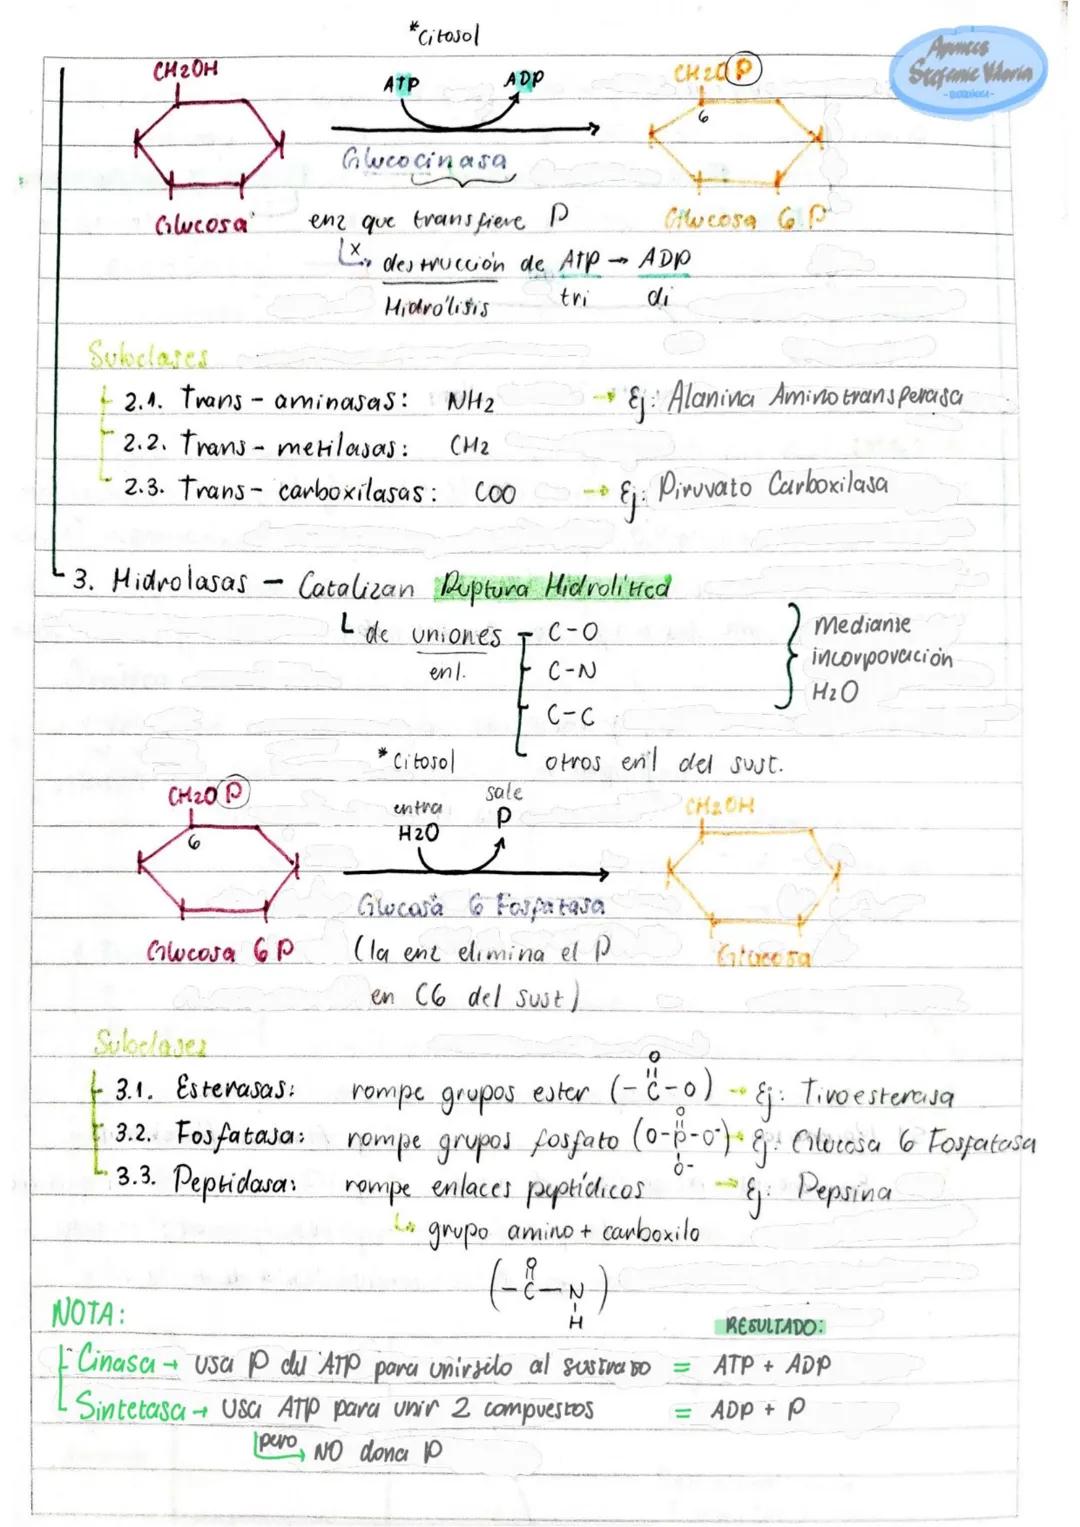 *Citosol
Apuntes
CH2OH
ATP
ADP
CH2O P
Stefanie Viloria
6
Glucocinasa
Glucosa
enz que transfiere P
Glucosa 6 P
x destrucción de ATP → ADP
Hidrólisis
tri
di
Subclases
2.1. Trans - aminasas: NH2 → Ej: Alanina Aminotransperasa
2.2. Trans - metilasas: CH2
2.3. Trans - carboxilasas: COO → Ej: Piruvato Carboxilasa
3. Hidrolasas - Catalizan Ruptura Hidrolítica
de uniones
enl.
C-O
C-N
C-C
otros enl del sust.
Mediante
incorporación
H2O
*Citosol
CH2O P
6
entra
H2O
sale
P
CH2OH
Glucosa 6 Fosfatasa
Glucosa 6 P
(la enz elimina el P
en C6 del sust)
Glucosa
Subclases
3.1. Esterasas: rompe grupos ester (-C-O) → Ej: Tiroesterasa
O
3.2. Fosfatasa: rompe grupos fosfato (O-P-O-) → Ej: Glucosa 6 Fosfatasa
O
O-
3.3. Peptidasa: rompe enlaces peptídicos → Ej: Pepsina
↳ grupo amino + carboxilo
O
(-C-N)
H
NOTA:
RESULTADO:
Cinasa → usa P del ATP para unirselo al sustrato = ATP + ADP
Sintetasa → usa ATP para unir 2 compuestos = ADP + P
pero NO dona P